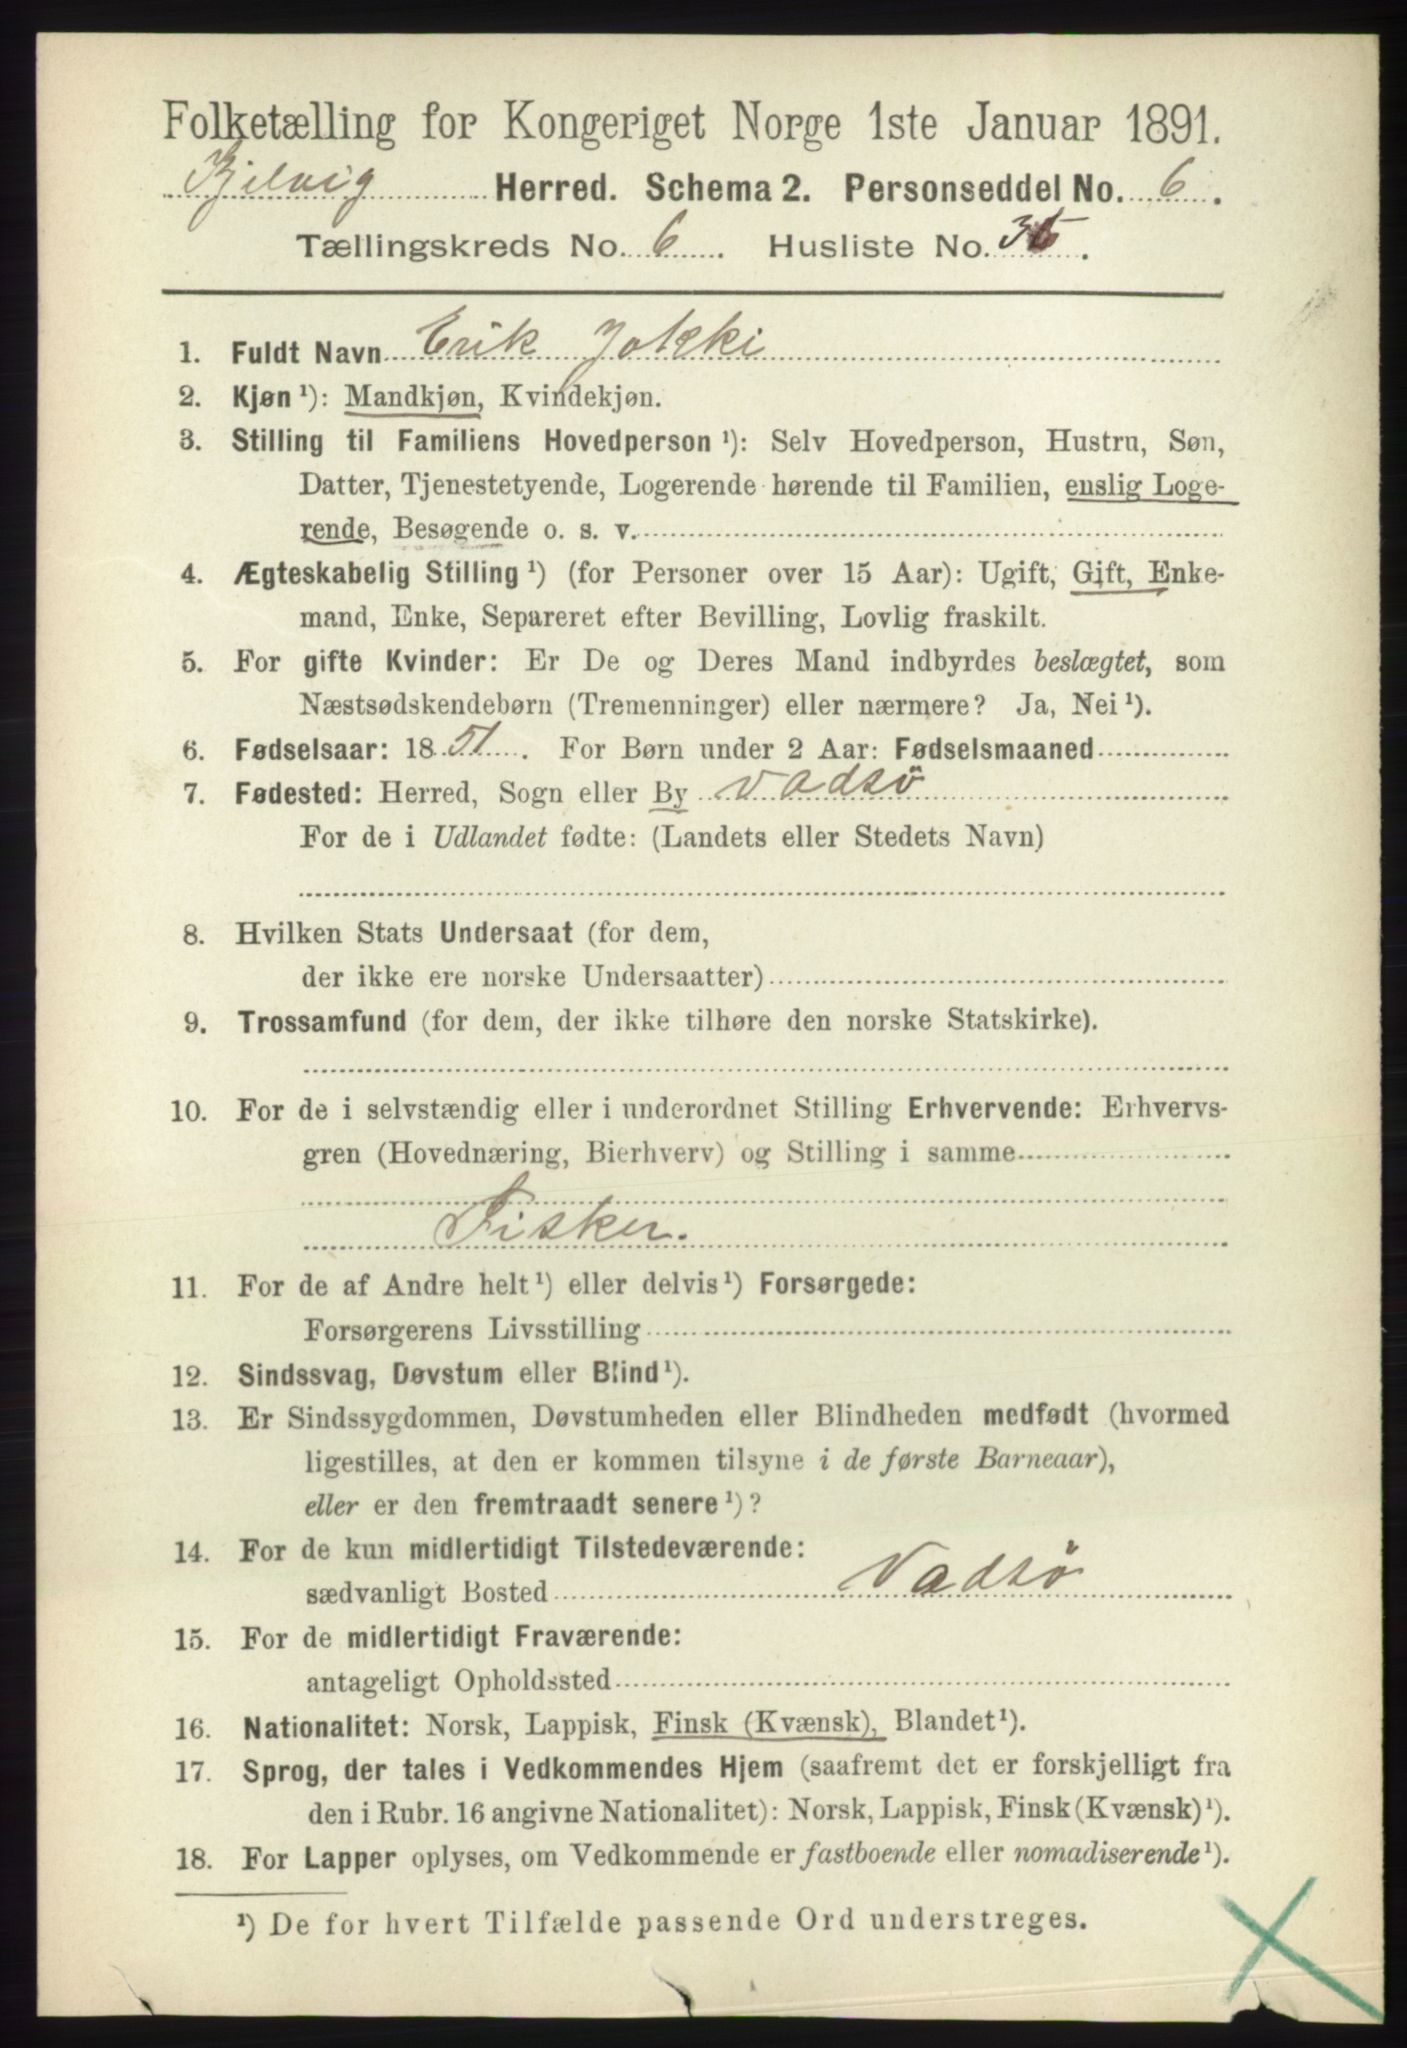 Folketælling for Kongeriget Norge 1ste Januar 1891.
Kjelvig Herred. Schema 2. Personseddel No. 6.
Tællingskreds No. 6. Husliste No. .
1. Fuldt Navn Erik Jokki
2. Kjøn ¹): Mandkjøn, Kvindekjøn.
3. Stilling til Familiens Hovedperson ¹): Selv Hovedperson, Hustru, Søn,
Datter, Tjenestetyende, Logerende hørende til Familien, enslig Loge-
rende, Besøgende o. s. v.
4. Ægteskabelig Stilling ¹) (for Personer over 15 Aar): Ugift, Gift, Enke-
mand, Enke, Separeret efter Bevilling, Lovlig fraskilt.
5. For gifte Kvinder: Er De og Deres Mand indbyrdes beslægtet, som
Næstsødskendebørn (Tremenninger) eller nærmere? Ja, Nei ¹).
6. Fødselsaar: 18 51. For Børn under 2 Aar: Fødselsmaaned
7. Fødested: Herred, Sogn eller By Vadsö
For de i Udlandet fødte: (Landets eller Stedets Navn)
8. Hvilken Stats Undersaat (for dem,
der ikke ere norske Undersaatter)
9. Trossamfund (for dem, der ikke tilhøre den norske Statskirke).
10. For de i selvstændig eller i underordnet Stilling Erhvervende: Erhvervs-
gren (Hovednæring, Bierhverv) og Stilling i samme
Fisker.
11. For de af Andre helt ¹) eller delvis ¹) Forsørgede:
Forsørgerens Livsstilling
12. Sindssvag, Døvstum eller Blind ¹).
13. Er Sindssygdommen, Døvstumheden eller Blindheden medfødt (hvormed
ligestilles, at den er kommen tilsyne i de første Barneaar),
eller er den fremtraadt senere ¹)?
14. For de kun midlertidigt Tilstedeværende:
sædvanligt Bosted Vadsö
15. For de midlertidigt Fraværende:
antageligt Opholdssted
16. Nationalitet: Norsk, Lappisk, Finsk (Kvænsk), Blandet ¹).
17. Sprog, der tales i Vedkommendes Hjem (saafremt det er forskjelligt fra
den i Rubr. 16 angivne Nationalitet): Norsk, Lappisk, Finsk (Kvænsk) ¹).
18. For Lapper oplyses, om Vedkommende er fastboende eller nomadiserende ¹).
¹) De for hvert Tilfælde passende Ord understreges.